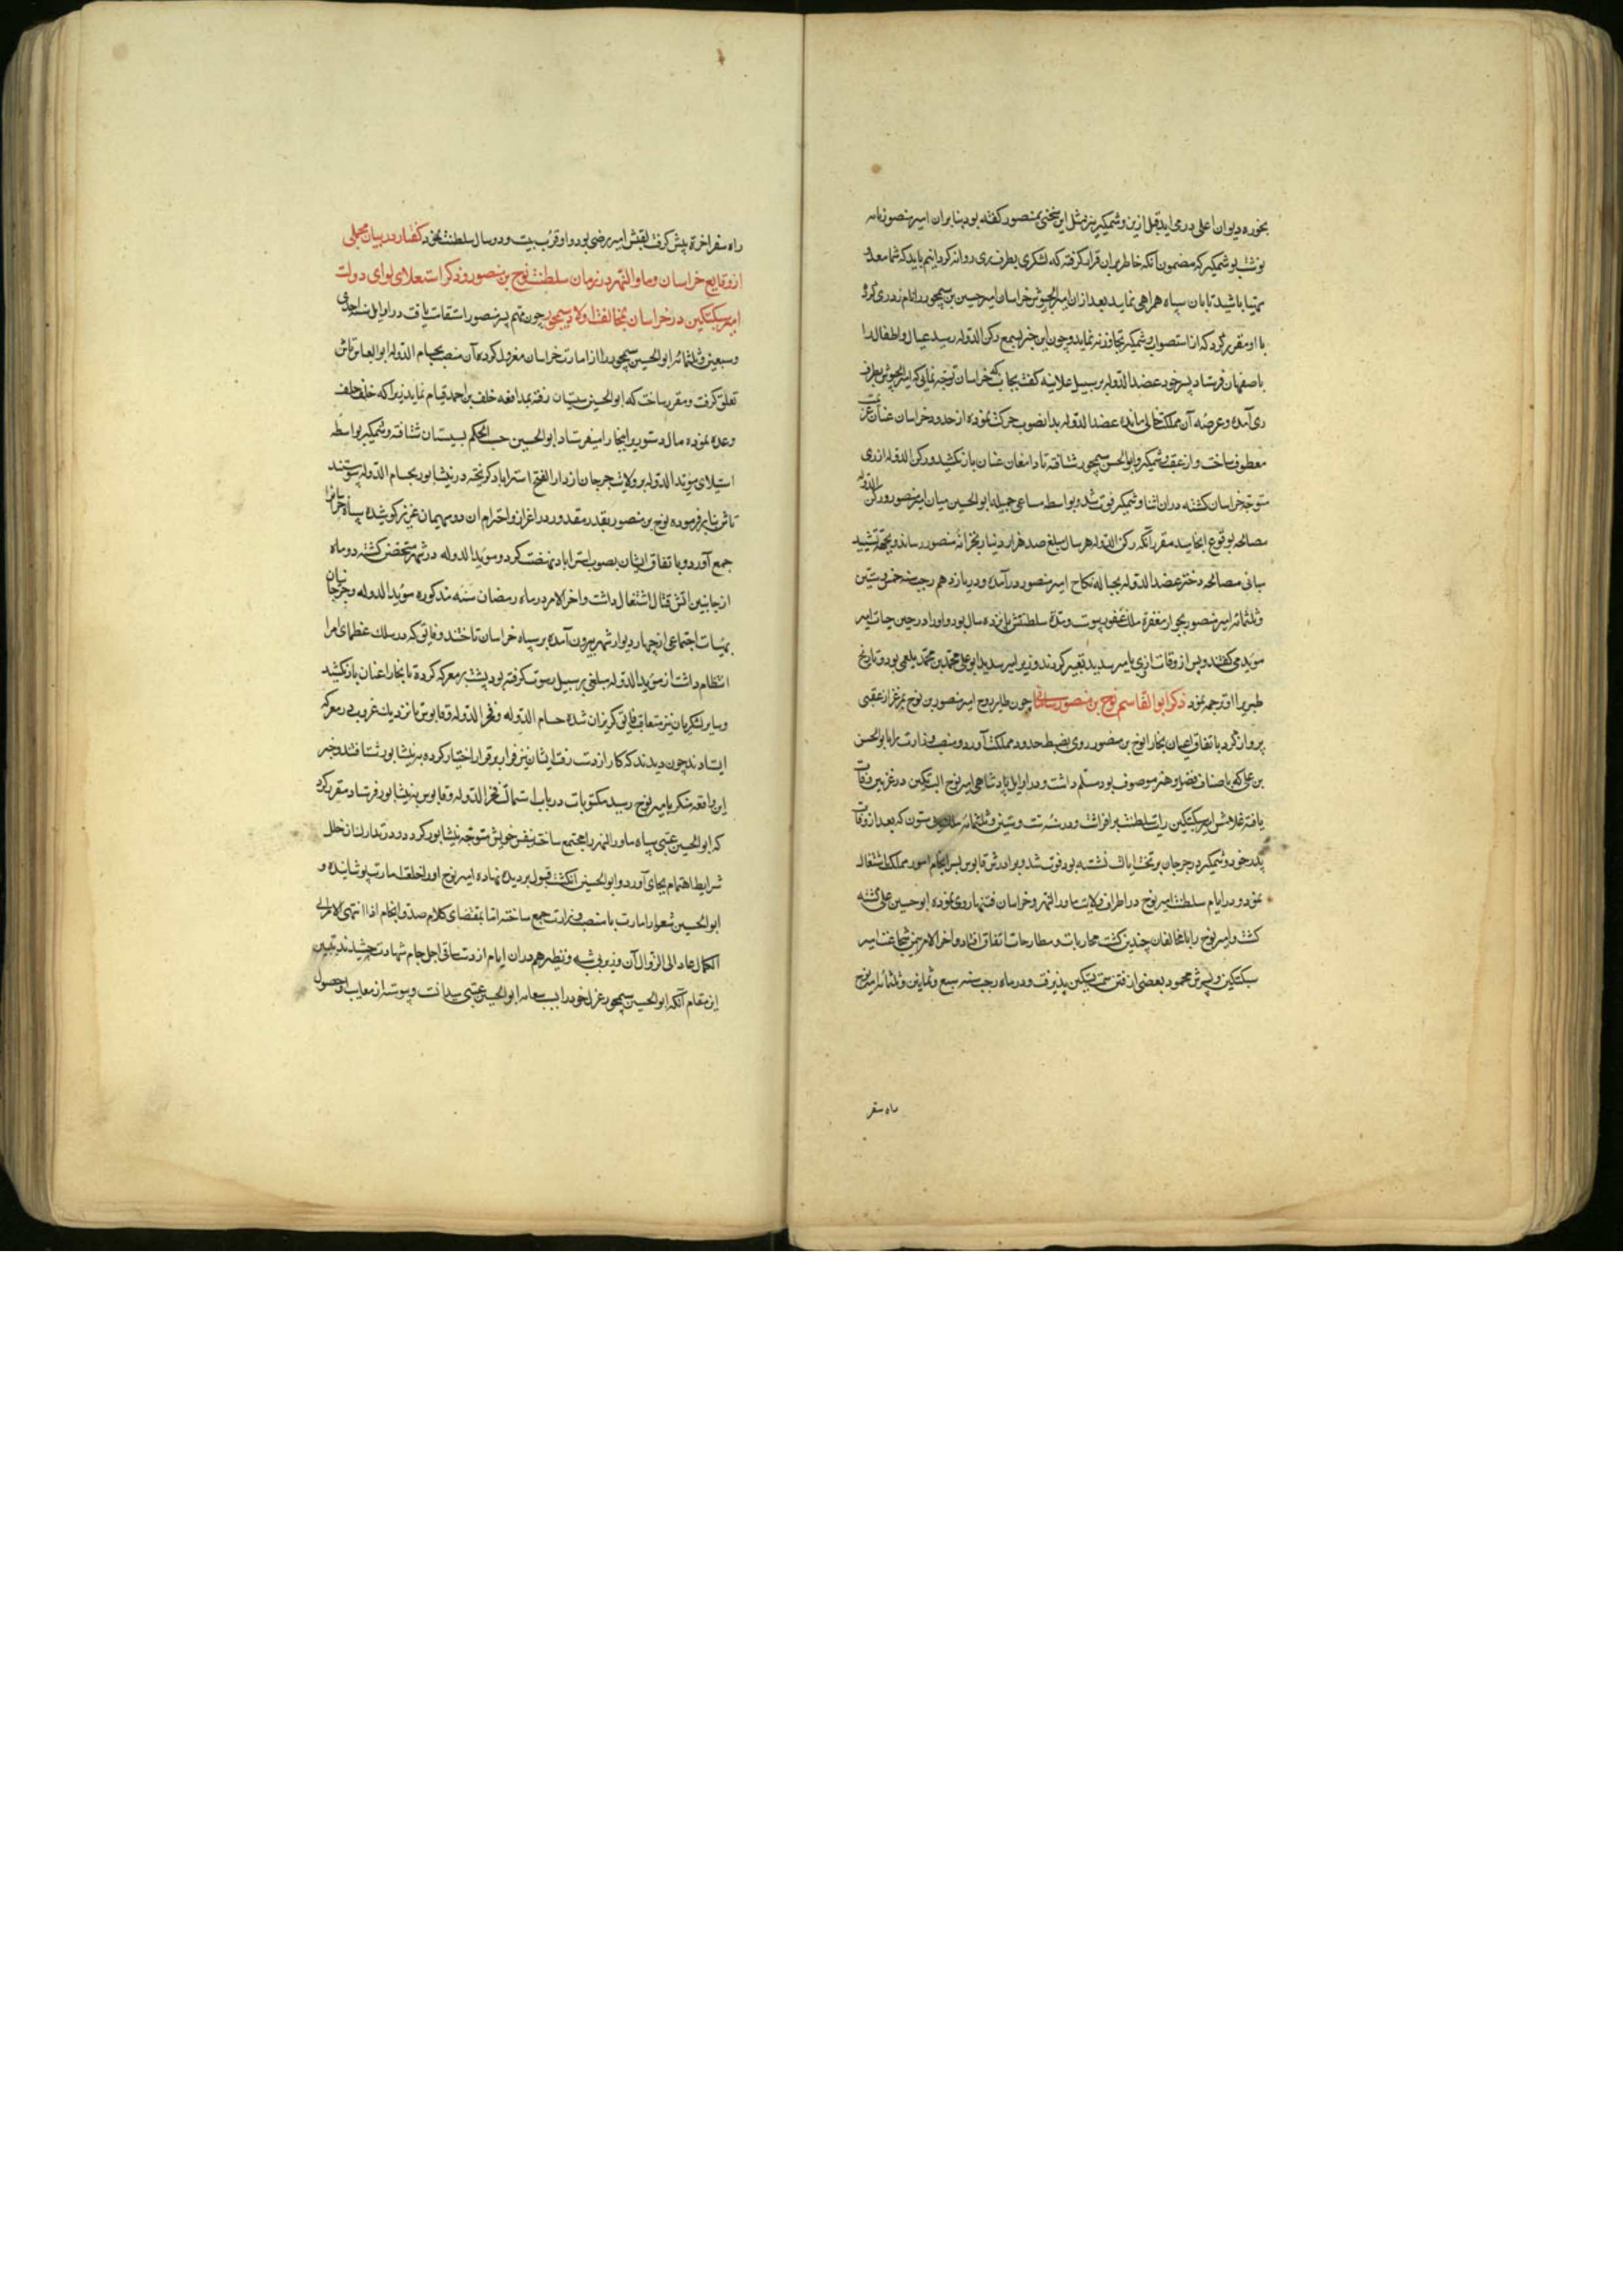 بخوره دیوان اعلی درمی اید قبل ازین وشمکیر نیز مثل این سخنی بمنصور کفته بود بنا بران امیر منصور نامه
نوشت بوشمکیر که مضمون آنکه خاطر بران قرار کرفته که لشکری بطرف ری روانه کردانیم باید که شما معد و
مهیا باشید تا بان سپاه همراهی نماید بعد ازان امیر الجیوش خراسان امیر حسین بن سیمجور را نامزد ری کرد
با او مقرر کرد که از استصواب وشمکیر تجاوز ننماید و چون این خبر بسمع رکن الدوله رسید عیال و اطفال را
باصفهان فرستاد پسر خود عضد الدوله بر سبیل علانیه کفت بجانب خراسان توجه نمائی که امیر الجیوش بطرف
ری آمده و عرصه آن مملکت خالی مانده عضد الدوله بدانصوب حرکت نموده از حدود خراسان عنان عزیمت
معطوف ساخت و از عقب وشمکیر و ابو الحسن سیمجور شتافته تا دامغان عنان باز نکشید و رکن الدوله از ری
متوجه خراسان کشته دران اثنا وشمکیر فوت شد و بواسطه مساعی جمیله ابو الحسین میان امیر منصور و رکن الدوله
مصالحه بوقوع انجامید مقرر آنکه رکن الدوله هر سال مبلغ صد هزار دینار بخزانه منصور رساند و بجهة تشیید
مبانی مصالحه دختر عضد الدوله بحباله نکاح امیر منصور درآمده و در یازدهم رجب سنه خمس و ستین
و ثلثمائه امیر منصور بجوار مغفرة ملک غفور پیوست و مدة سلطنتش پانزده سال بود و او را در حین حیات امیر
موید می کفتند و پس از وفات ازی بامیر سدید تعبیر کردند و زیر امیر سدید ابو علی محمد بن محمد بلعمی بود و تاریخ
طبری را او ترجمه نمود ذکر ابو القاسم نوح بن منصور سامانی چون طایر روح امیر منصور بن نوح بمرغزار عقبی
پرواز کرد باتفاق اعیان بخارا نوح بن منصور روی بضبط حدود مملکت آورد و منصب وزارت را بابو الحسن
بن علی که باصناف فضل و هنر موصوف بود مسلم داشت و در اوایل پادشاهی امیر نوح البتکین در غزنین وفات
یافته غلامش امیر سبکتکین رایت سلطنت برافراشت و در سنه ست و ستین و ثلثمائه ستون که بعد از وفات
پدر خود وشمکیر در جرجان بر تخت ایالت نشسته بود فوت شد و برادرش قابوس بسرانجام امور مملکت اشتغال
نمود و در ایام سلطنت امیر نوح در اطراف ولایت ماورالنهر و خراسان فتنها روی نموده ابو حسین علی کشته
کشت و امیر نوح را با مخالفان چندین کشت محاربات و مطارحات اتفاق افتاد و اخر الامر بیمن شجاعت امیر
سبکتکین و پسرش محمود بعضی از فتن سمت تسکین پذیرفت و در ماه رجب سنه سبع و ثمانین و ثلثمائه امیر نوح
راه سفر
راه سفر اخرة پیش کرفت لقبش امیر رضی بود و او قرب بیست و دو سال سلطنت نمود کفتار در بیان مجملی
از وقایع خراسان و ماوراالنهر در زمان سلطنت نوح بن منصور و ذکر استعلای لوای دولت
امیر سبکتکین در خراسان بمخالفت اولاد سیمجور چون مهم پسر منصور استقامت یافت در اوایل سنه احدی
و سبعین و ثلثمائه ابو الحسین سیمجور را از امارت خراسان معزول کرده آن منصب بحسام الدوله ابو العباس تاش
تعلق کرفت و مقرر ساخت که ابو الحسین بسیستان رفته بمدافعه خلف بن احمد قیام نماید زیرا که خلف خلف
وعده نموده مال دستوری ببخارا میفرستاد ابو الحسین حسب الحکم بسیستان شتافته وشمکیر بواسطه
استیلای موید الدوله بر ولایت جرجان از دار الفتح استراباد کریخته در نیشابور بحسام الدوله پیوستند
تاش بنابر فرموده نوح بن منصور بقدر مقدور در اعزاز و احترام ان دو میهمان عزیز کوشیده سپاه خراسان را
جمع آورد و باتفاق ایشان بصوب استراباد نهضت کرد و موید الدوله در شهر متحصن کشته دو ماه
از جانبین اتش قتال اشتغال داشت و اخر الامر در ماه رمضان سنه مذکوره موید الدوله و جرجانیان
بهیئات اجتماعی از چهار دیوار شهر بیرون آمده بر سپاه خراسان تاختند و فایق که در سلک عظمای امرا
انتظام داشت از موید الدوله مبلغی بر سبیل رسوت کرفته بود پشت بر معرکه کرده تا بخارا عنان باز نکشید
و سایر لشکریان نیز متعاقب فایق کریزان شده حسام الدوله و فخر الدوله و قابوس تا نزدیک غروب در معرکه
ایستادند چون دیدند که کار از دست رفت ایشان نیز فرار بر قرار اختیار کرده به نیشابور شتافتند و خبر
این واقعه منکر بامیر نوح رسید مکتوبات در باب استمالت فخر الدوله و قابوس به نیشابور فرستاد مقرر کرد
که ابو الحسین عتبی سپاه ماورالنهر را مجتمع ساخته بنفس خویش متوجه نیشابور کردد و در تدارک از خلل
شرایط اهتمام بجای آورد و ابو الحسین انکشت قبول بر دیده نهاده امیر نوح او را خلعت امارت پوشانیده و
ابو الحسین شعار امارت با منصب وزارت جمع ساخته اما بمقتضای کلام صدق انجام اذا انتهی الامر الی
الکمال عاد الی الزوال آن وزیر بی شبه و نظیر هم دران ایام از دست ساقی اجل جام شهادت چشید تبیین
این مقام آنکه ابو الحسین سیمجور عزل خود را بسبب سعایه ابو الحسین عتبی میدانست و پیوسته از معایب و حصول